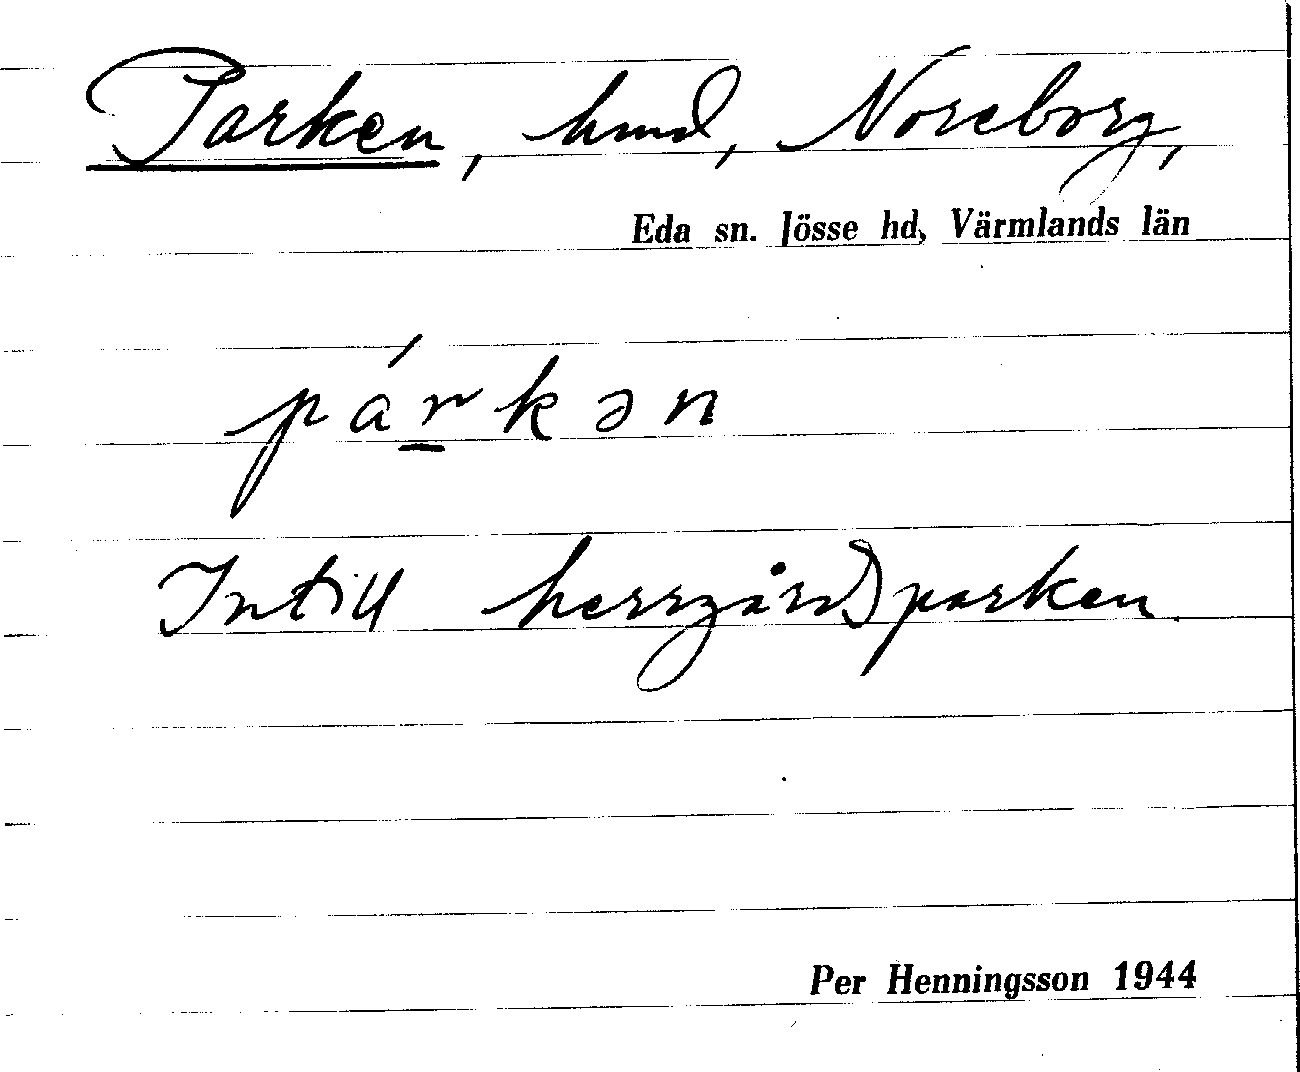 Parken, hmd, Noreborg,
Eda sn. Jösse hd, Värmlands län
párkən
Intill herrgårdsparken.
Per Henningsson 1944